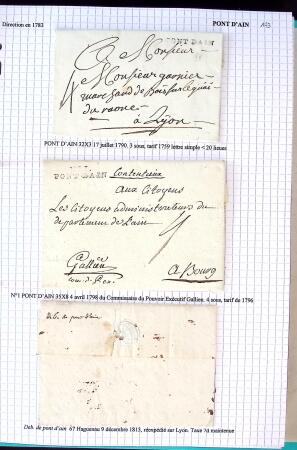 Direction en 1783
PONT D'AIN
PONT D'AIN
A Monsieur
Monsieur garnier
marchand de Bois sur le quai
du
à Lyon
PONT D'AIN 32X3 17 juillet 1790, 3 sous, tarif 1759 lettre simple < 20 lieues
PONT-DAIN
Contentieux
aux Citoyens
Les Citoyens administrateurs du
département de l'ain
Gallien
A Bourg
N°1 PONT D'AIN 35X8 4 avril 1798 du Commissaire du Pouvoir Exécutif Gallien, 4 sous, tarif de 1796
Deb. de pont d'ain
Deb. de pont d'ain 67 Haguenau 9 décembre 1813, réexpédié sur Lyon. Taxe 7d maintenue